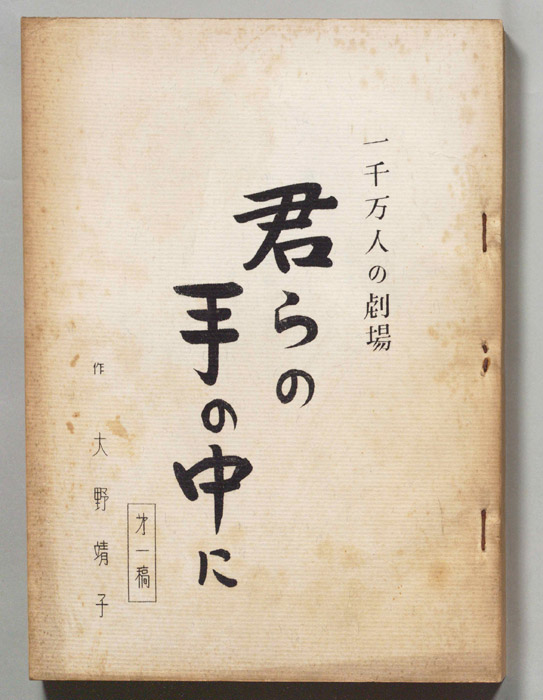 一千万人の劇場
君らの
手の中に
才一稿
作 大野靖子